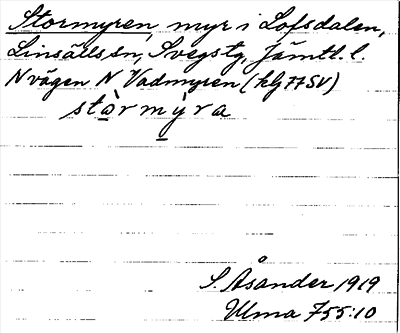 Stormyren, myr i Lofsdalen,
Linsälls sn, Svegs tg, Jämtl. l.
N vägen N Vadmyren (kg 77 SV)
stàr mỳra
S. Åsander 1919
Ulma 755:10